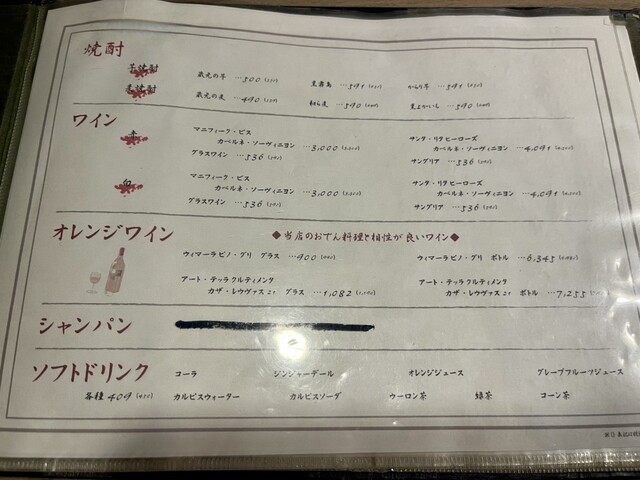 焼酎
芋焼酎 蔵元の芋 …500 黒霧島 …591 からり芋 …591
麦焼酎 蔵元の麦 …490 和ら麦 …590 …590
ワイン
赤 マニフィーク・ビス サンタ・リタヒーローズ
カベルネ・ソーヴィニヨン …3,000 カベルネ・ソーヴィニヨン …4,091
グラスワイン …536 サングリア …536
白 マニフィーク・ビス サンタ・リタヒーローズ
カベルネ・ソーヴィニヨン …3,000 カベルネ・ソーヴィニヨン …4,091
グラスワイン …536 サングリア …536
オレンジワイン ◆当店のおでん料理と相性が良いワイン◆
ウィマーラ ピノ・グリ グラス …900 ウィマーラ ピノ・グリ ボトル …6,345
アート・テッラ クルティメンタ アート・テッラ クルティメンタ
カザ・レウヴァス グラス …1,082 カザ・レウヴァス ボトル …7,255
シャンパン
ソフトドリンク コーラ ジンジャーデール オレンジジュース グレープフルーツジュース
各種 409 カルピスウォーター カルピスソーダ ウーロン茶 緑茶 コーン茶